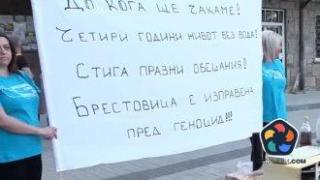 До кога ще чакаме!
Четири години живот без вода!
Стига празни обещания!
Брестовица е изправена
пред геноцид!!!